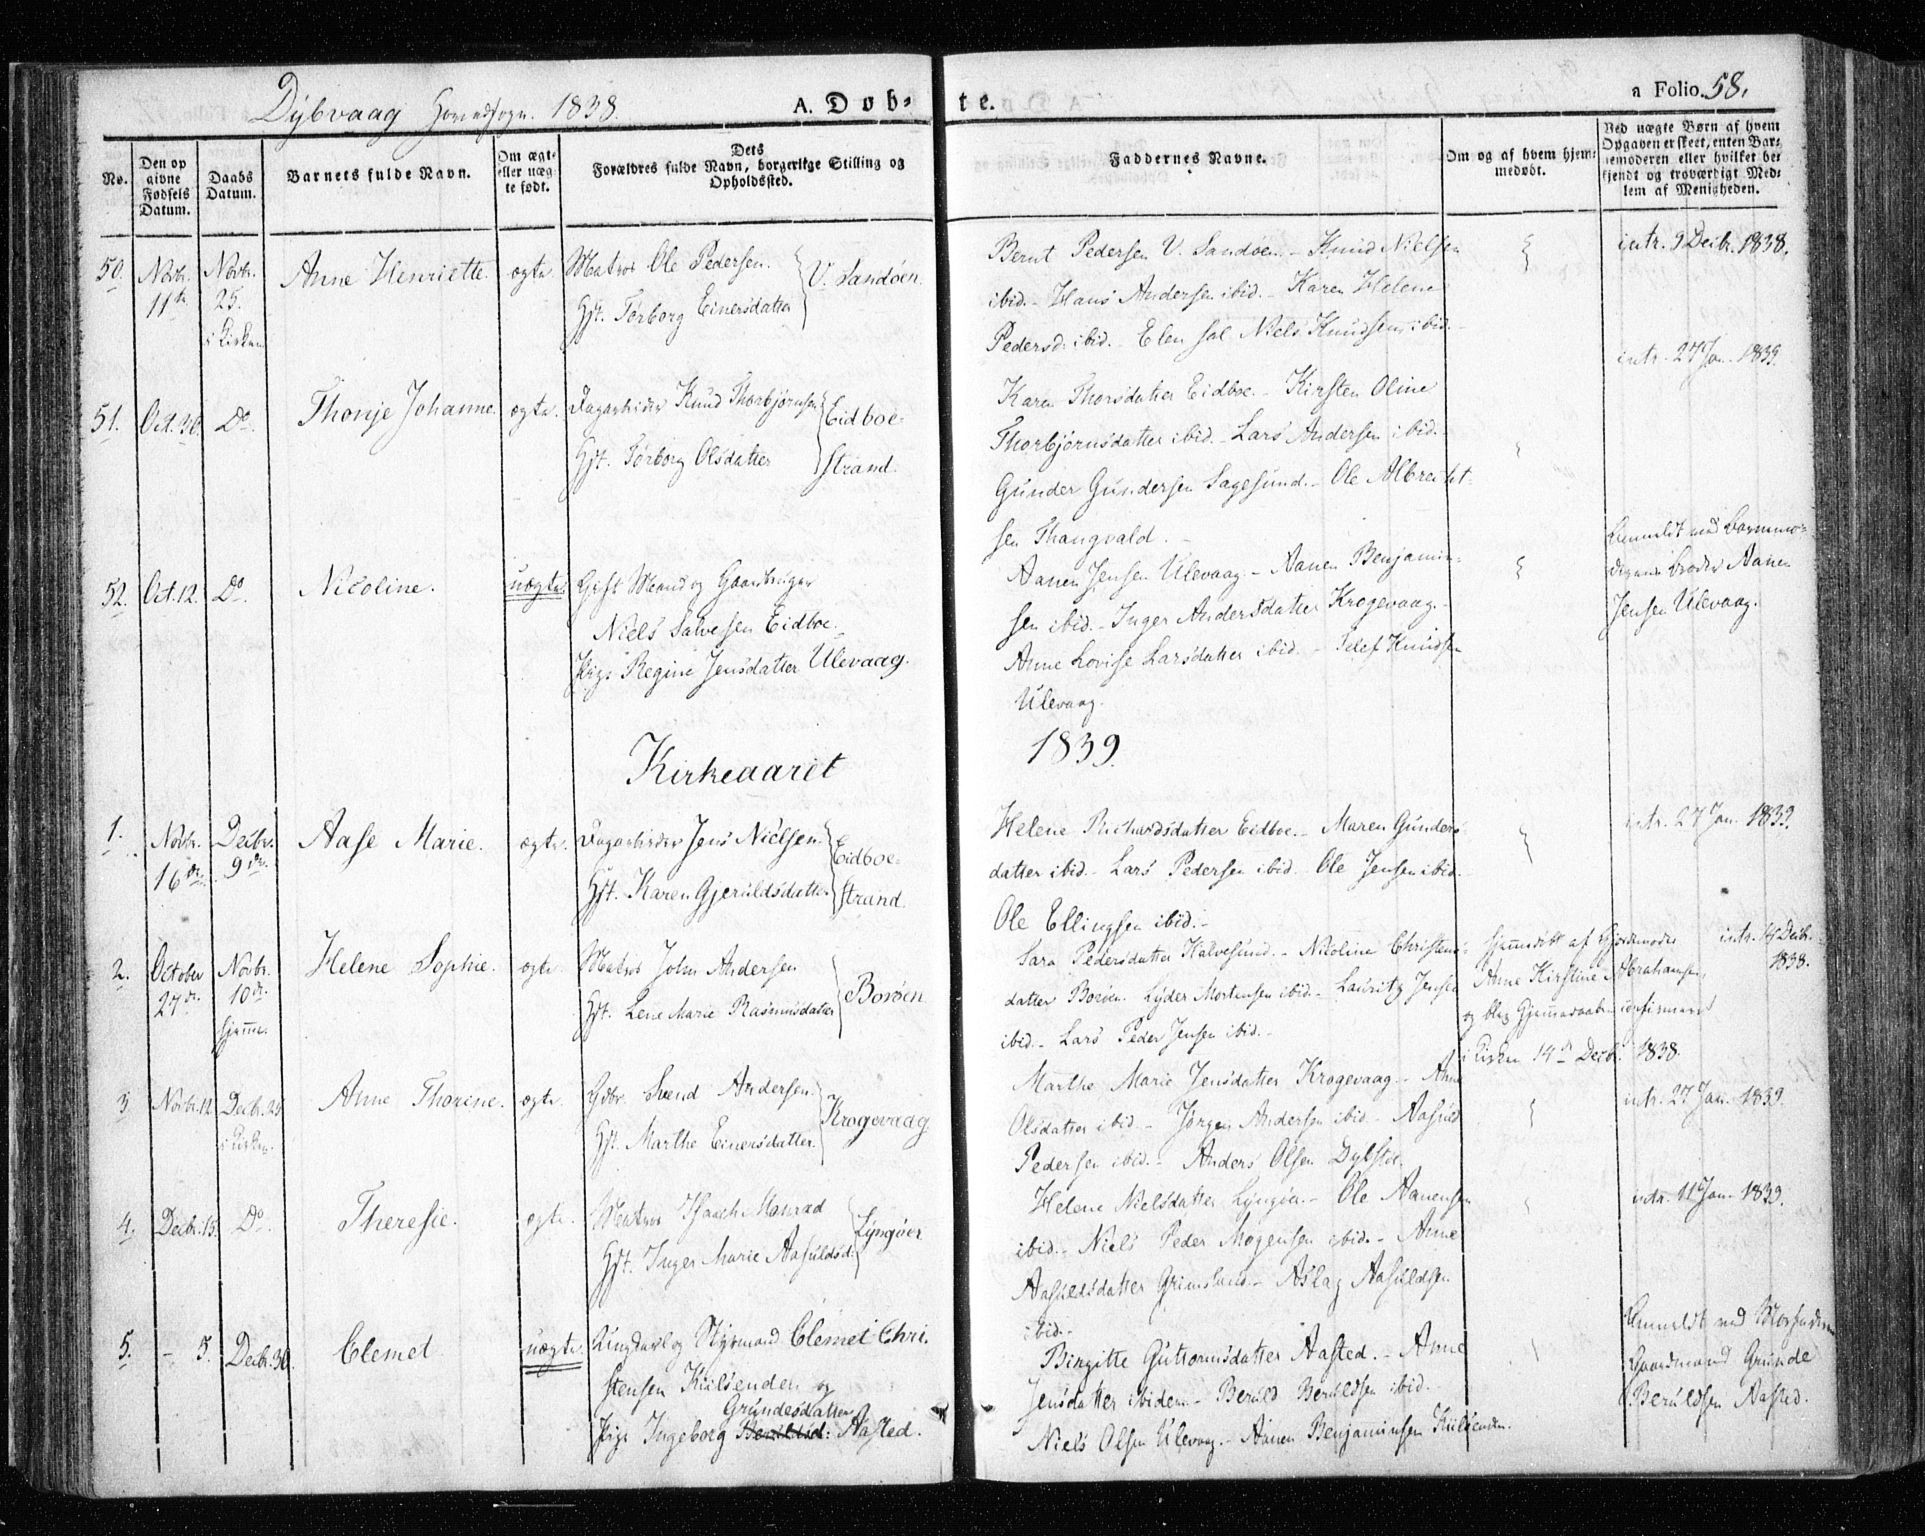 Dybvaag Hovedsogn. 1838.
A. Døb=
te.
a Folio 58.
No.
Den opgivne Fødsels Datum.
Daabs Datum.
Barnets fulde Navn.
Om ægte eller uægte født.
Dets Forældres fulde Navn, borgerlige Stilling og Opholdssted.
Faddernes Navne.
Om og af hvem hjemmedøbt.
Ved uægte Børn af hvem Opgaven er skeet, enten Barnemoderen eller hvilket bekjendt og troværdigt Medlem af Menigheden.
50. Novbr. 11te
Novbr. 25. i Kirken
Anne Henriette.
ægte.
Matros Ole Pedersen.
Hst. Torborg Einersdatter
V. Sandøen.
Bernt Pedersen V. Sandøen. - Knud Nielsen
ibid. - Hans Andersen ibid. - Karen Helene
Pedersd. ibid. - Elen sal. Niels Knudsens ibid. -
intr. 9 Decbr. 1838.
51. Oct. 30.
Do.
Thonje Johanne.
ægte.
Dagarbeider Knud Thorbjørnsen
Hst. Torborg Olsdatter
Eidboe-
strand.
Karen Thorsdatter Eidboe. - Kirsten Oline
Thorbjørnsdatter ibid. - Lars Andersen ibid. -
Gunder Gundersen Sagesund. - Ole Albrecht-
sen Thangvald. -
intr. 27 Jan. 1839.
52. Oct. 12.
Do.
Nicoline.
uægte.
Gift Mand og Gaardbruger
Niels Salvesen Eidboe.
Pige Regine Jensdatter Ulevaag.
Aanen Jensen Ulevaag. - Aanen Benjamin-
sen ibid. - Inger Andersdatter Krogevaag. -
Anne Lovise Larsdatter ibid. - Telef Knudsen
Ulevaag.
Anmeldt ved Barnemo-
derens Broder Aanen
Jensen Ulevaag.
Kirkeaaret
1839.
1. Novbr. 16de
Decbr. 9de
Aase Marie.
ægte.
Dagarbeider Jens Nielsen
Hst. Karen Gjeruldsdatter
Eidboe-
strand.
Helene Richardsdatter Eidboe. - Maren Gunders-
datter ibid. - Lars Pedersen ibid. - Ole Jensen ibid. -
Ole Ellingsen ibid. -
intr. 27 Jan. 1839.
2. October 27de.
Novbr. 10de. hjemme.
Helene Sophie.
ægte.
Matros John Andersen
Hst. Lene Marie Rasmusdatter
Borøen
Sara Pedersdatter Kalvesund. - Nicoline Christens-
datter Borøen. Lyder Mortensen ibid. - Lauritz Jensen
ibid. - Lars Peder Jensen ibid. -
hjemmedøbt af Gjordemoder
Anne Kirstine Abrahamsen,
og blev Hjemmedaaben confirmeret
i Kirken 14de Decbr. 1838.
intr. 14 Decbr. 1838.
3 Novbr. 12
Decbr. 25 i Kirken.
Anne Thorine.
ægte.
Gdbr. Svend Andersen.
Hst. Marthe Einersdatter
Krogevaag
Marthe Marie Jensdatter Krogevaag. - Anne
Olsdatter ibid. - Jørgen Andersen ibid. - Aasuld
Pedersen ibid. - Anders Olsen
intr. 27 Jan. 1839.
4. Decbr. 15.
Do.
Theresie.
ægte.
Matros Isaach Monrad
Hst. Inger Marie Aasuldsd.
Lyngøer
Helene Nielsdatter Lyngøer. - Ole Aanensen
ibid. - Niels Peder Mogensen ibid. - Anne
Aasuldsdatter Grimsland. - Aslag Aasuldsen
ibid. -
intr. 11 Jan. 1839.
5. - 5.
Decbr. 30.
Clemet
uægte.
Ungkarl og Styrmand Clemet Chri-
stensen Kiilsenden og
Grundesdatter
Pige Ingeborg Beruldsd: Aasted.
Birgitte Guttormsdatter Aasted. - Anne
Jensdatter ibidem. - Beruld Beruldsen ibid.
Niels Olsen Ulevaag. - Aanen Benjaminsen Kiilsenden.
Anmeldt ved Morfaderen
Gaardmand Grunde
Beruldsen Aasted.